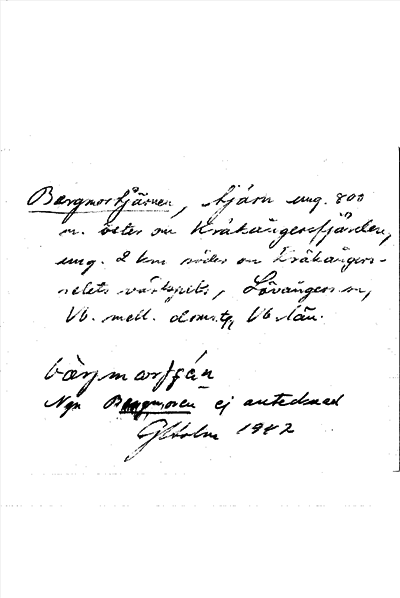 Bergmorstjärnen, tjärn ung. 800
m. öster om Kråkångersfjärden,
ung. 2 km söder om Kråkångers-
nelets västspets, Lövångers sn,
Vb. mell. doms.tg, Vb. län.
Ngn Bergmoren ej antecknad
GHolm 1942